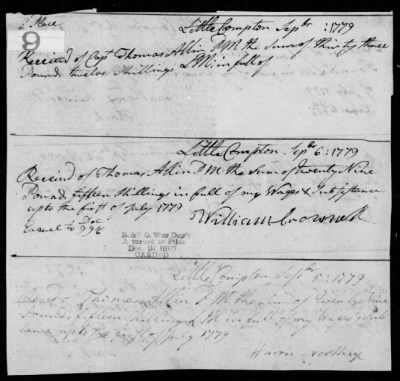 Little Compton Sepbr : 1779
Receivd of Capt Thomas Allin P M the Sum of thirty three
Pound twelve Shillings L M in full of
9
Little Compton Sepbr 6 : 1779
Receivd of Thomas Allin P M the Sum of twenty Nine
Pound fifteen Shillings in full of my Wages & Subsistance
upto the first of July 1779
William Crownell
R & P O. War Dep't
Returned to Files
Dec. 13 1887
CARDED
Little Compton Sepbr 6 : 1779
Thomas Allin P M the sum of twenty Nine
Pound fifteen Shilling L M in full of my Wages & Sub
upto the first of July 1779